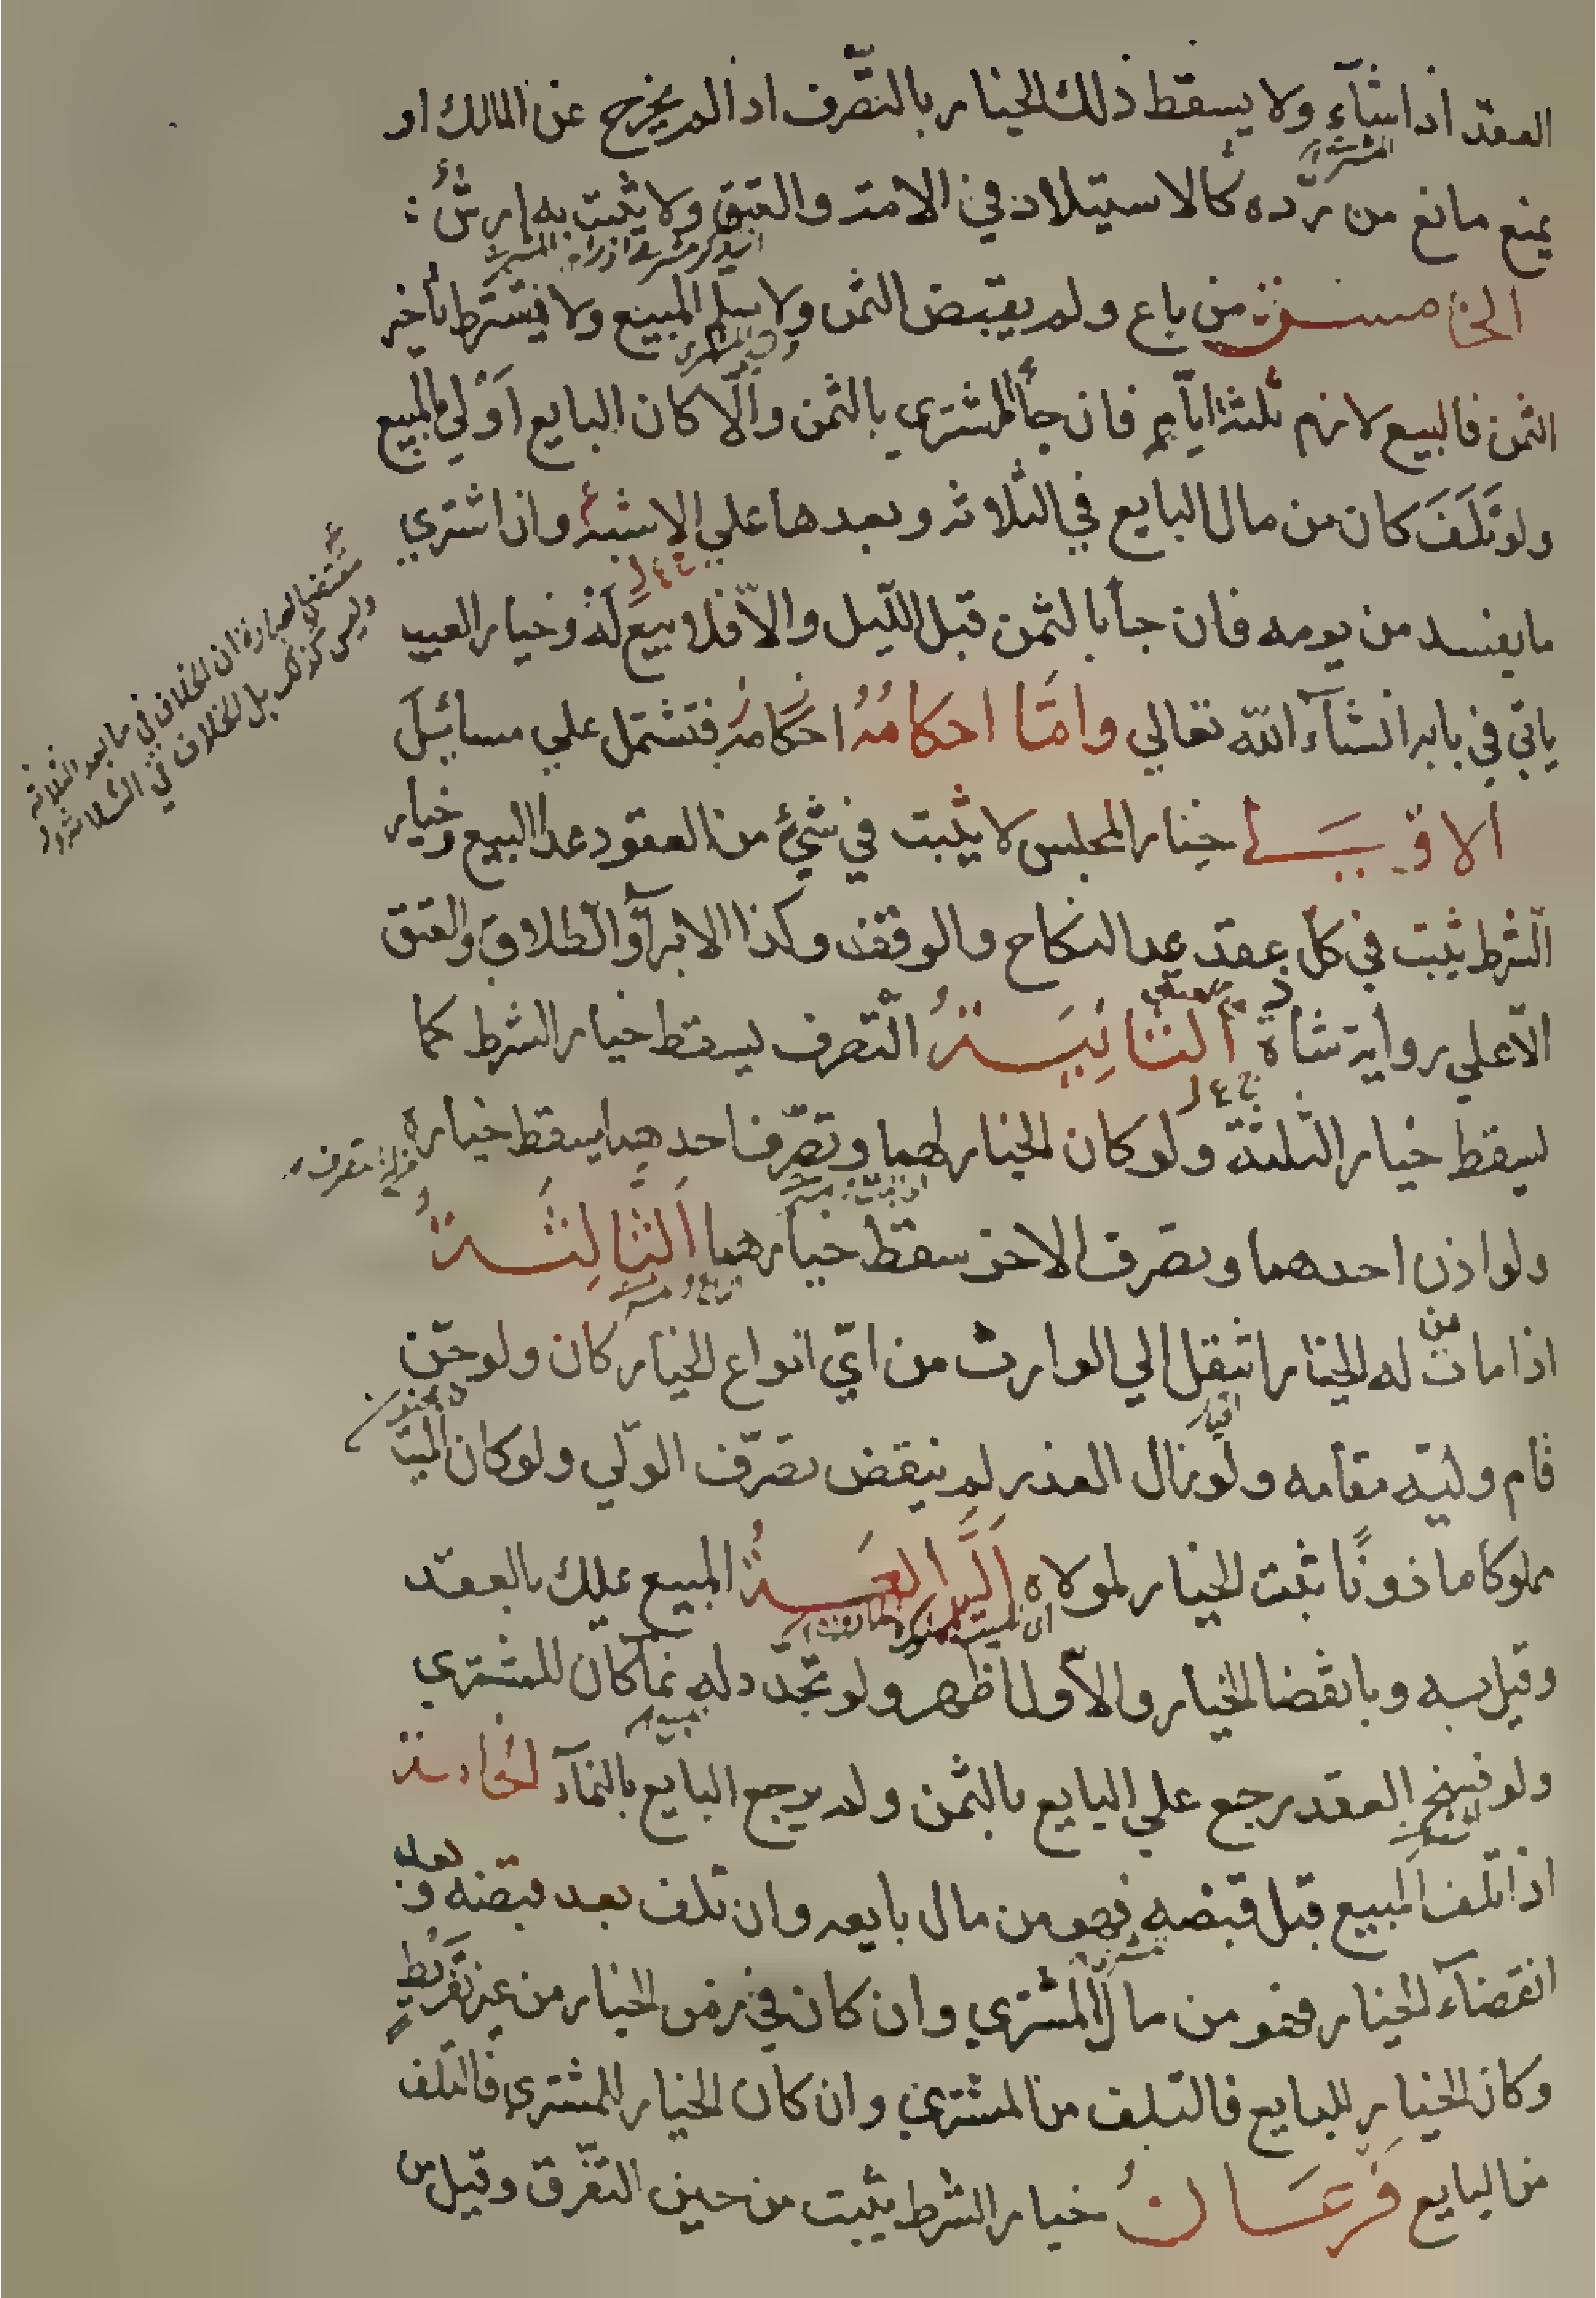 العقد اذا شآء ولا يسقط ذلك الخيار بالتصّرف اذا لم يخرج عن المالك او
يمنع مانع من ردّه كالاستيلاد في الامة والعتق ولا يثبت به ارش
الخامسة من باع ولم يقبض الثمن ولا سلّم المبيع ولا اشترط تأخير
الثمن فالبيع لازم ثلثة ايّام فان جاء المشتري بالثمن والّا كان البايع اَوْلي بالمبيع
ولو تَلَفَ كان من مال البايع في الثلاثة وبعدها علي الاشبه وان اشتري
ما يفسد من يومه فان جأ بالثمن قبل اللّيل والّا فلا بيع لَهُ وخيار العيب
ياتي في بابه انشآء اللّه تعالي وامّا احكامُهُ احكامه فتشتمل علي مسائيل
الاوّلي خيار المجلس لا يثبت في شيءٍ من العقود عدا البيع وخيار
الشرط يثبت في كلّ عقد عدا النكاح والوقف وكذا الابرآء والطلاق والعتق
الّا علي رواية شاذة اَلثّانِيَةُ التّصرف يسقط خيار الشرط كما
يسقط خيار الثلثة ولو كان الخيار لهما وتصّرف احدهما يسقط خياره
ولو اذن احدهما وتصرف الاخر سقط خيارهما اَلثّالِثَةُ
اذا مات من له الخيار انتقل الي الوارث من ايّ انواع الخيار كان ولو جنّ
قام وليّه مقامه ولو زال العذر لم ينقض تصرّف الولّي ولو كان الميّت
مملوكا ماذونًا ثبت الخيار لمولاه اَلرَّابعَةُ المبيع يملك بالعقد
وقيل به وبانقضا الخيار والاوّل اظهر ولو تجّدد له نمآ كان للمشتري
ولو فسخ العقد رجع علي البايع بالثمن ولم يرجع البايع بالنمآء الخامسة
اذا تلف المبيع قبل قبضه فهو من مال بايعه وان تلف بعد قبضه وبعد
انقضآء الخيار فهو من مال المشتري وان كان في زمن الخيار من غير تفريط
وكان الخيار للبايع فالتلف من المشتري وان كان الخيار للمشتري فالتلف
من البايع فَرْعَانُ خيار الشرط يثبت من حين التفّرق وقيل من
مقتضي العبارة ان الخلاف في ما بعد الثلاثة
وليس كذلك بل الخلاف في الثلاثة